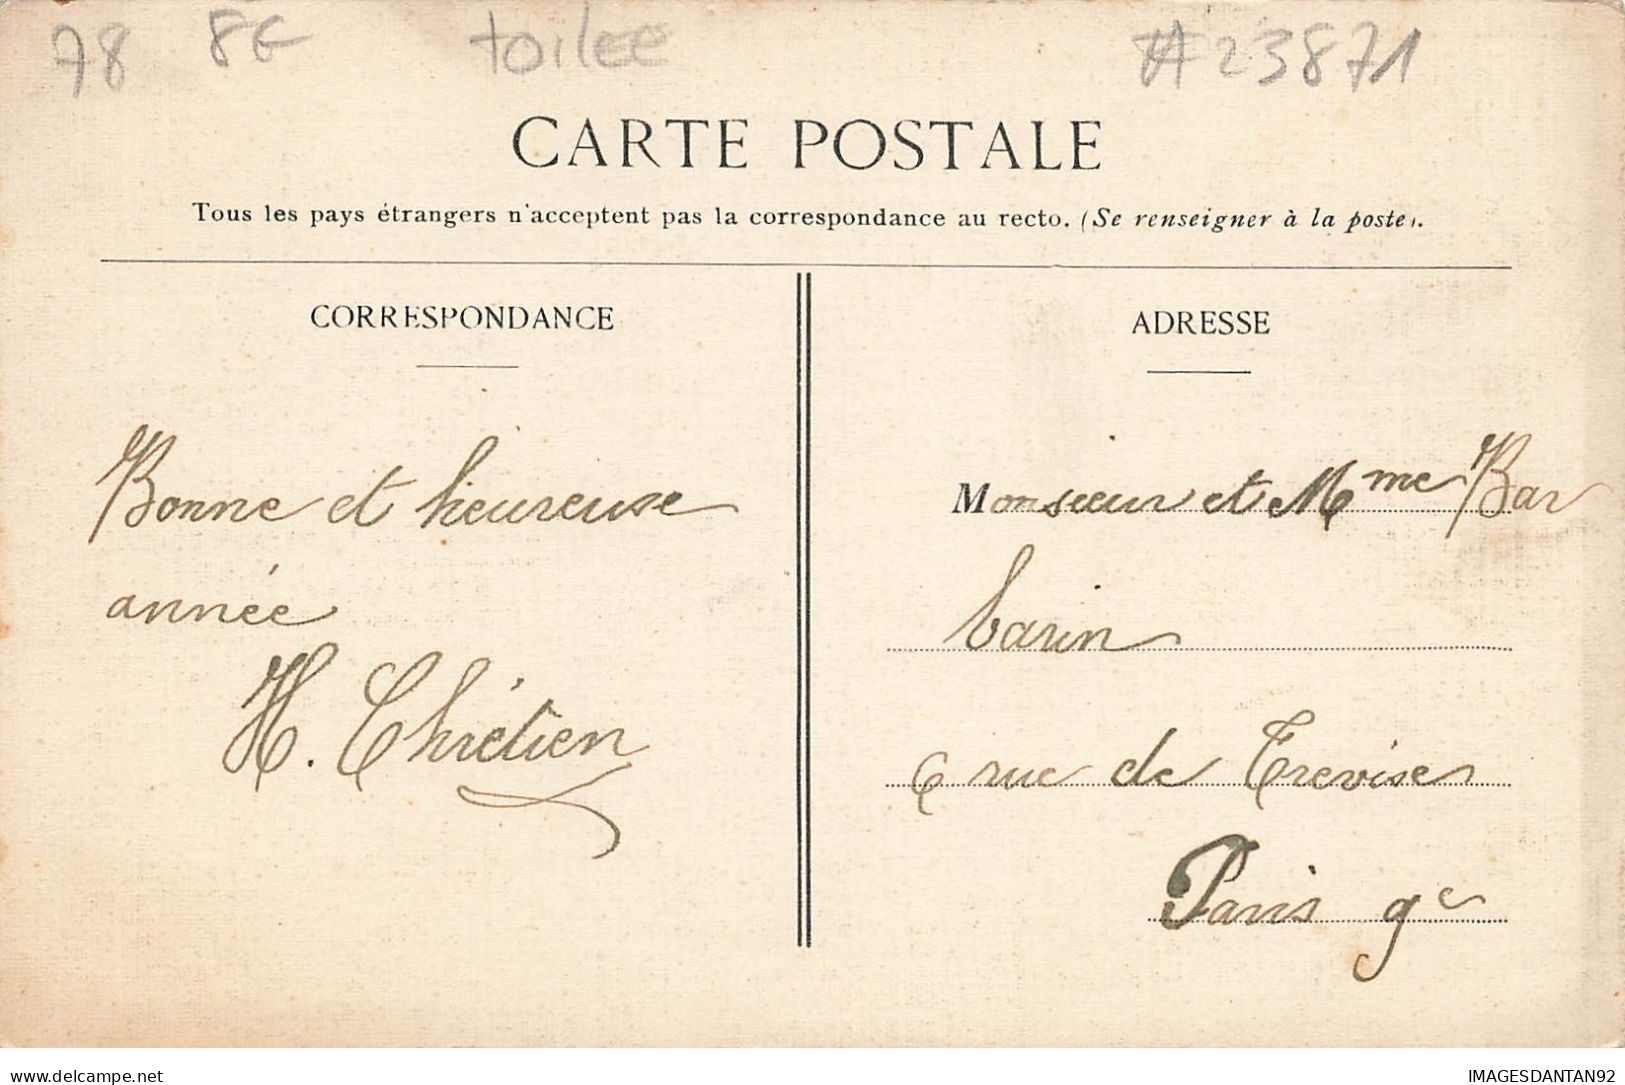 78 8€ toilee #23871
CARTE POSTALE
Tous les pays étrangers n'acceptent pas la correspondance au recto. (Se renseigner à la poste).
CORRESPONDANCE
Bonne et heureuse
année
H. Chrétien
ADRESSE
Monsieur et Mme Bar
barin
6 rue de Trevise
Paris 9e
www.delcampe.net
IMAGESDANTAN92